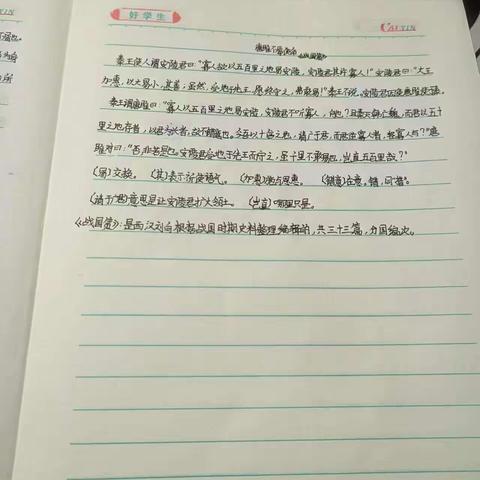 好学生
CAIYIN
唐雎不辱使命 《战国策》
秦王使人谓安陵君曰:“寡人欲以五百里之地易安陵,安陵君其许寡人!”安陵君曰:“大王
加惠,以大易小,甚善;虽然,受地于先王,愿终守之,弗敢易!”秦王不说。安陵君因使唐雎使于秦。
秦王谓唐雎曰:“寡人以五百里之地易安陵,安陵君不听寡人,何也?且秦灭韩亡魏,而君以五十
里之地存者,以君为长者,故不错意也。今吾以十倍之地,请广于君,而君逆寡人者,轻寡人与?”唐
雎对曰:“否,非若是也。安陵君受地于先王而守之,虽千里不敢易也,岂直五百里哉?”
(易)交换。 (其)表示祈使语气。 (加惠)给与恩惠。 (错意)在意。错,同“措”。
(请广于君)意思是让安陵君扩大领土。 (岂直)哪里只是。
《战国策》:是西汉刘向根据战国时期史料整理编辑的,共三十三篇,分国编次。